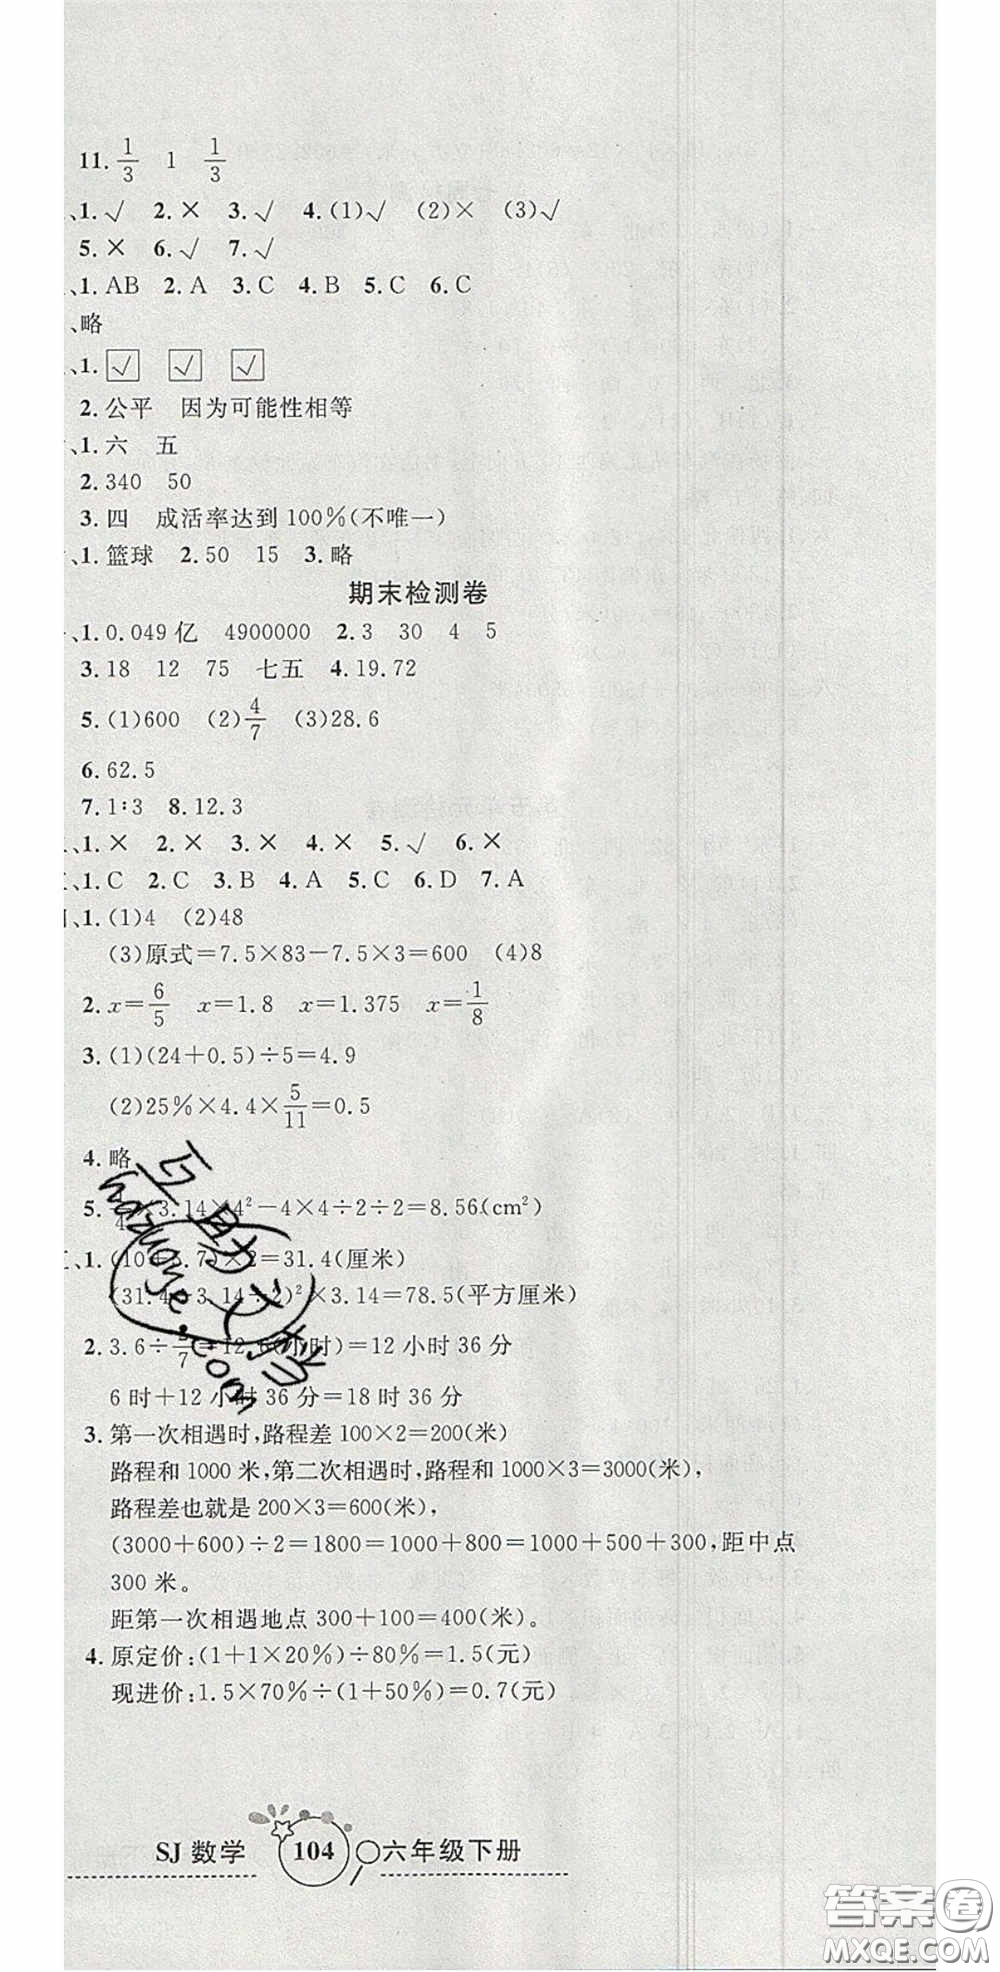 11. 1/3 1 1/3
、1.√ 2.× 3.√ 4.(1)√ (2)× (3)√
5.× 6.√ 7.√
、1.AB 2.A 3.C 4.B 5.C 6.C
、略
、1.☑ ☑ ☑
2.公平 因为可能性相等
、1.六 五
2.340 50
3.四 成活率达到100%(不唯一)
、1.篮球 2.50 15 3.略
期末检测卷
一、1.0.049亿 4900000 2.3 30 4 5
3.18 12 75 七五 4.19.72
5.(1)600 (2)4/7 (3)28.6
6.62.5
7.1∶3 8.12.3
、1.× 2.× 3.× 4.× 5.√ 6.×
、1.C 2.C 3.B 4.A 5.C 6.D 7.A
、1.(1)4 (2)48
(3)原式=7.5×83-7.5×3=600 (4)8
2.x=6/5 x=1.8 x=1.375 x=1/8
3.(1)(24+0.5)÷5=4.9
(2)25%×4.4×5/11=0.5
4.略
5. ×3.14×4²-4×4÷2÷2=8.56(cm²)
、1.(10+5.7)×2=31.4(厘米)
(31.4÷3.14÷2)²×3.14=78.5(平方厘米)
2.3.6÷2/7=12.6(小时)=12小时36分
6时+12小时36分=18时36分
3.第一次相遇时,路程差100×2=200(米)
路程和1000米,第二次相遇时,路程和1000×3=3000(米),
路程差也就是200×3=600(米),
(3000+600)÷2=1800=1000+800=1000+500+300,距中点
300米。
距第一次相遇地点300+100=400(米)。
4.原定价:(1+1×20%)÷80%=1.5(元)
现进价:1.5×70%÷(1+50%)=0.7(元)
互助文档
hdzuoye.com
SJ 数学 104 六年级下册
答案圈
MXQE.COM